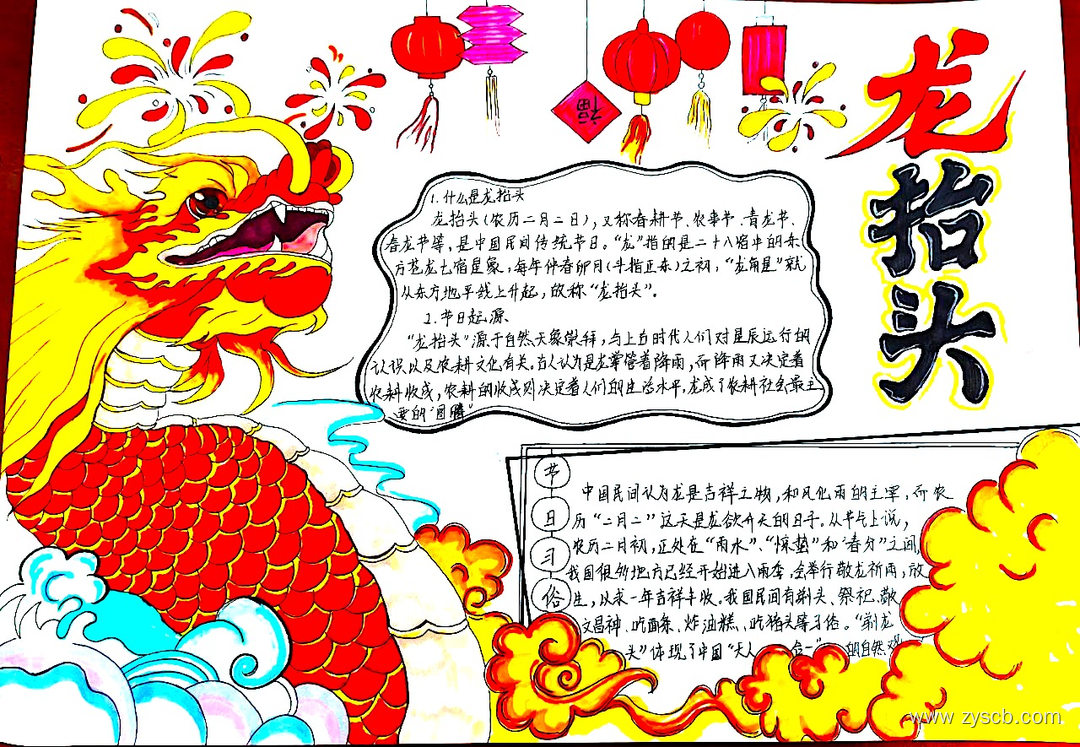 龙抬头
福
1.什么是龙抬头
龙抬头(农历二月二日),又称春耕节、农事节、青龙节、
春龙节等,是中国民间传统节日。“龙”指的是二十八宿中的东
方苍龙七宿星象,每年仲春卯月(斗指正东)之初,“龙角星”就
从东方地平线上升起,故称“龙抬头”。
2.节日起源
“龙抬头”源于自然天象崇拜,与上古时代人们对星辰运行的
认识以及农耕文化有关。古人认为是龙掌管着降雨,而降雨又决定着
农耕收成,农耕的收成则决定着人们的生活水平,龙成了农耕社会最主
要的“图腾”
节日习俗
中国民间认为龙是吉祥之物,和风化雨的主宰,而农
历“二月二”这天是龙欲升天的日子。从节气上说,
农历二月初,正处在“雨水”、“惊蛰”和“春分”之间,
我国很多地方已经开始进入雨季。会举行敬龙祈雨,放
生,以求一年吉祥丰收。我国民间有剃头、祭祀、敬
文昌神、吃面条、炸油糕、吃猪头等习俗。“剃龙
头”体现了中国“天人合一”的自然观
www.zyscb.com